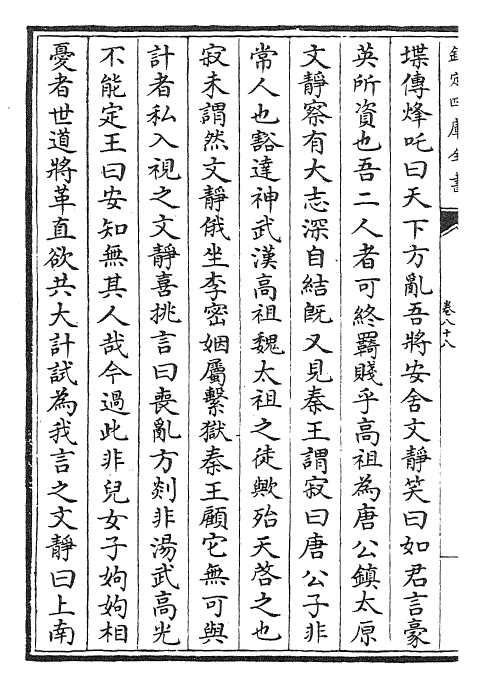 欽定四庫全書
卷八十八
堞傳烽吒曰天下方亂吾將安舍文靜笑曰如君言豪
英所資也吾二人者可終羇賤乎高祖為唐公鎮太原
文靜察有大志深自結既又見秦王謂寂曰唐公子非
常人也豁達神武漢高祖魏太祖之徒歟殆天啓之也
寂未謂然文靜俄坐李密姻屬繫獄秦王顧它無可與
計者私入視之文靜喜挑言曰喪亂方剡非湯武髙光
不能定王曰安知無其人哉今過此非兒女子姁姁相
憂者世道將革直欲共大計試為我言之文靜曰上南